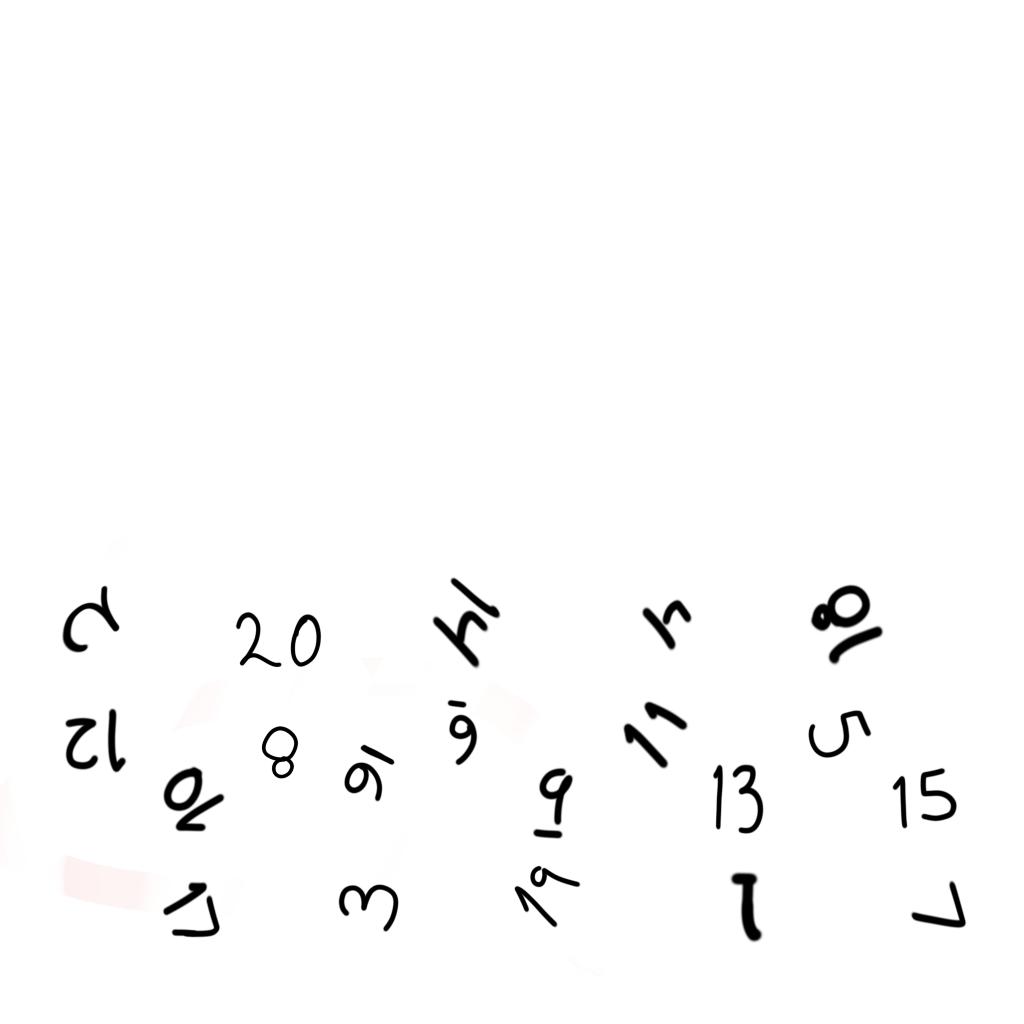 2 20 14 4 18
12 8 16 6 11 5
10 9 13 15
17 3 19 1 7